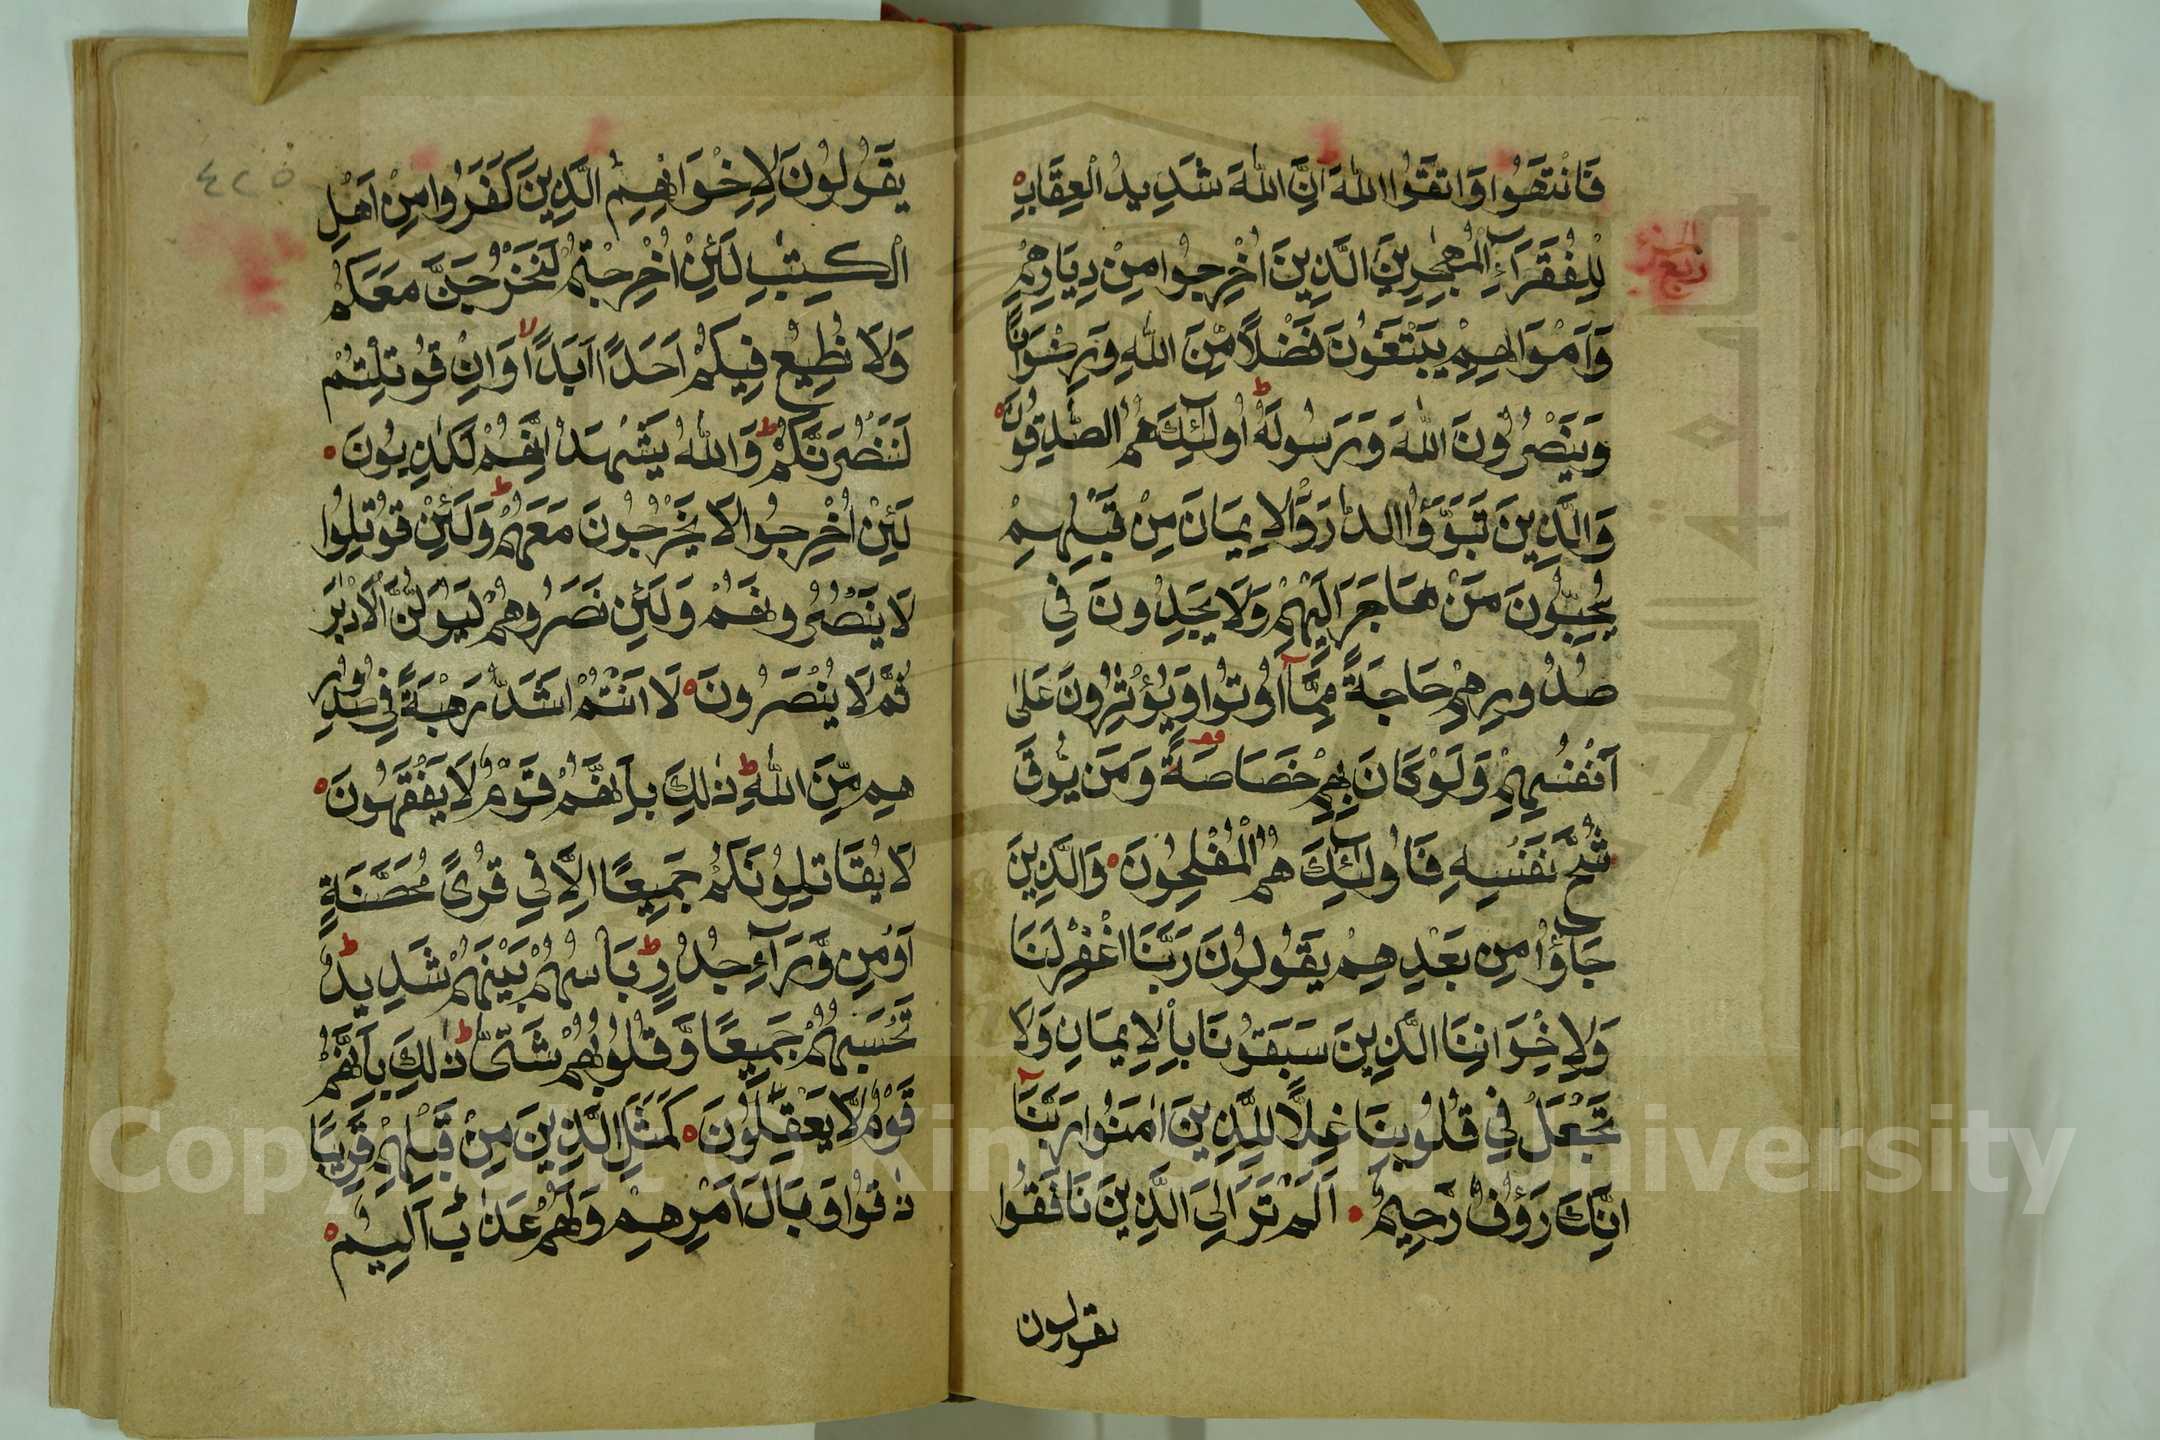 فَانْتَهُوا وَاتَّقُوا اللّٰهَ اِنَّ اللّٰهَ شَدِيدُ الْعِقَابِ
لِلْفُقَرَآءِ الْمُهٰجِرِينَ الَّذِينَ اُخْرِجُوا مِنْ دِيَارِهِمْ
وَاَمْوَالِهِمْ يَبْتَغُونَ فَضْلًا مِّنَ اللّٰهِ وَرِضْوَانًا
وَيَنْصُرُونَ اللّٰهَ وَرَسُولَهُ ط اُولٰٓئِكَ هُمُ الصّٰدِقُونَ
وَالَّذِينَ تَبَوَّؤُا الدَّارَ وَالْاِيمَانَ مِنْ قَبْلِهِمْ
يُحِبُّونَ مَنْ هَاجَرَ اِلَيْهِمْ وَلَا يَجِدُونَ فِي
صُدُورِهِمْ حَاجَةً مِّمَّآ اُوتُوا وَيُؤْثِرُونَ عَلٰى
اَنْفُسِهِمْ وَلَوْ كَانَ بِهِمْ خَصَاصَةٌ وَمَنْ يُّوقَ
شُحَّ نَفْسِهِ فَاُولٰٓئِكَ هُمُ الْمُفْلِحُونَ وَالَّذِينَ
جَاؤُا مِنْ بَعْدِهِمْ يَقُولُونَ رَبَّنَا اغْفِرْ لَنَا
وَلِاِخْوَانِنَا الَّذِينَ سَبَقُونَا بِالْاِيمَانِ وَلَا
تَجْعَلْ فِي قُلُوبِنَا غِلًّا لِلَّذِينَ اٰمَنُوا رَبَّنَآ
اِنَّكَ رَؤُفٌ رَّحِيمٌ اَلَمْ تَرَ اِلَى الَّذِينَ نَافَقُوا
يقولون
٤٢٥
يَقُولُونَ لِاِخْوَانِهِمُ الَّذِينَ كَفَرُوا مِنْ اَهْلِ
الْكِتٰبِ لَئِنْ اُخْرِجْتُمْ لَنَخْرُجَنَّ مَعَكُمْ
وَلَا نُطِيعُ فِيكُمْ اَحَدًا اَبَدًا لا وَاِنْ قُوتِلْتُمْ
لَنَنْصُرَنَّكُمْ ط وَاللّٰهُ يَشْهَدُ اِنَّهُمْ لَكٰذِبُونَ
لَئِنْ اُخْرِجُوا لَا يَخْرُجُونَ مَعَهُمْ ط وَلَئِنْ قُوتِلُوا
لَا يَنْصُرُونَهُمْ وَلَئِنْ نَصَرُوهُمْ لَيُوَلُّنَّ الْاَدْبٰرَ
ثُمَّ لَا يُنْصَرُونَ لَا اَنْتُمْ اَشَدُّ رَهْبَةً فِي صُدُورِ
هِمْ مِّنَ اللّٰهِ ط ذٰلِكَ بِاَنَّهُمْ قَوْمٌ لَا يَفْقَهُونَ
لَا يُقَاتِلُونَكُمْ جَمِيعًا اِلَّا فِي قُرًى مُحَصَّنَةٍ
اَوْ مِنْ وَّرَآءِ جُدُرٍ ط بَاْسُهُمْ بَيْنَهُمْ شَدِيدٌ ط
تَحْسَبُهُمْ جَمِيعًا وَّقُلُوبُهُمْ شَتّٰى ط ذٰلِكَ بِاَنَّهُمْ
قَوْمٌ لَّا يَعْقِلُونَ كَمَثَلِ الَّذِينَ مِنْ قَبْلِهِمْ قَرِيبًا
ذَاقُوا وَبَالَ اَمْرِهِمْ وَلَهُمْ عَذَابٌ اَلِيمٌ
Copyright © King Saud University